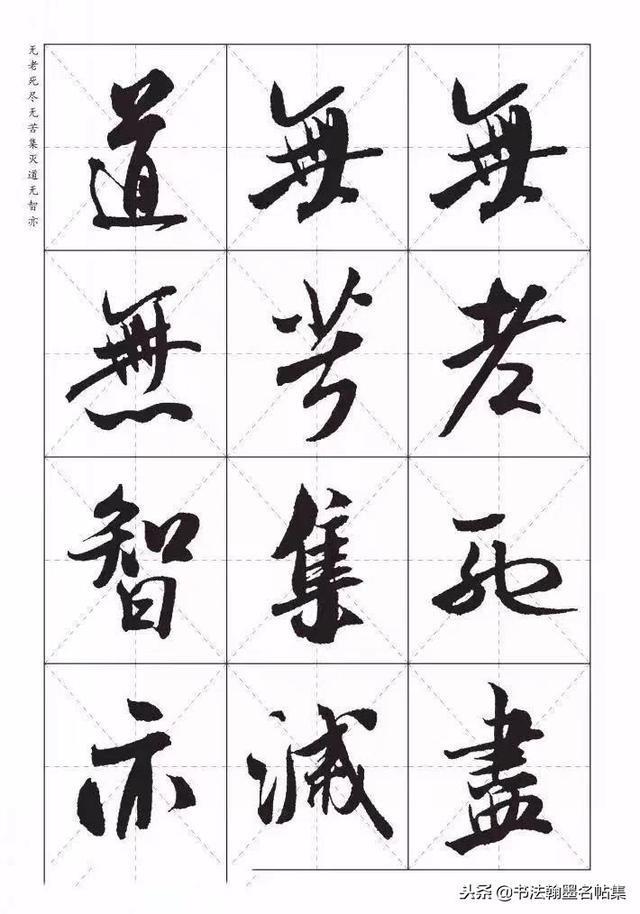 無老死盡
無苦集滅
道無智亦
无老死尽无苦集灭道无智亦
头条@书法翰墨名帖集